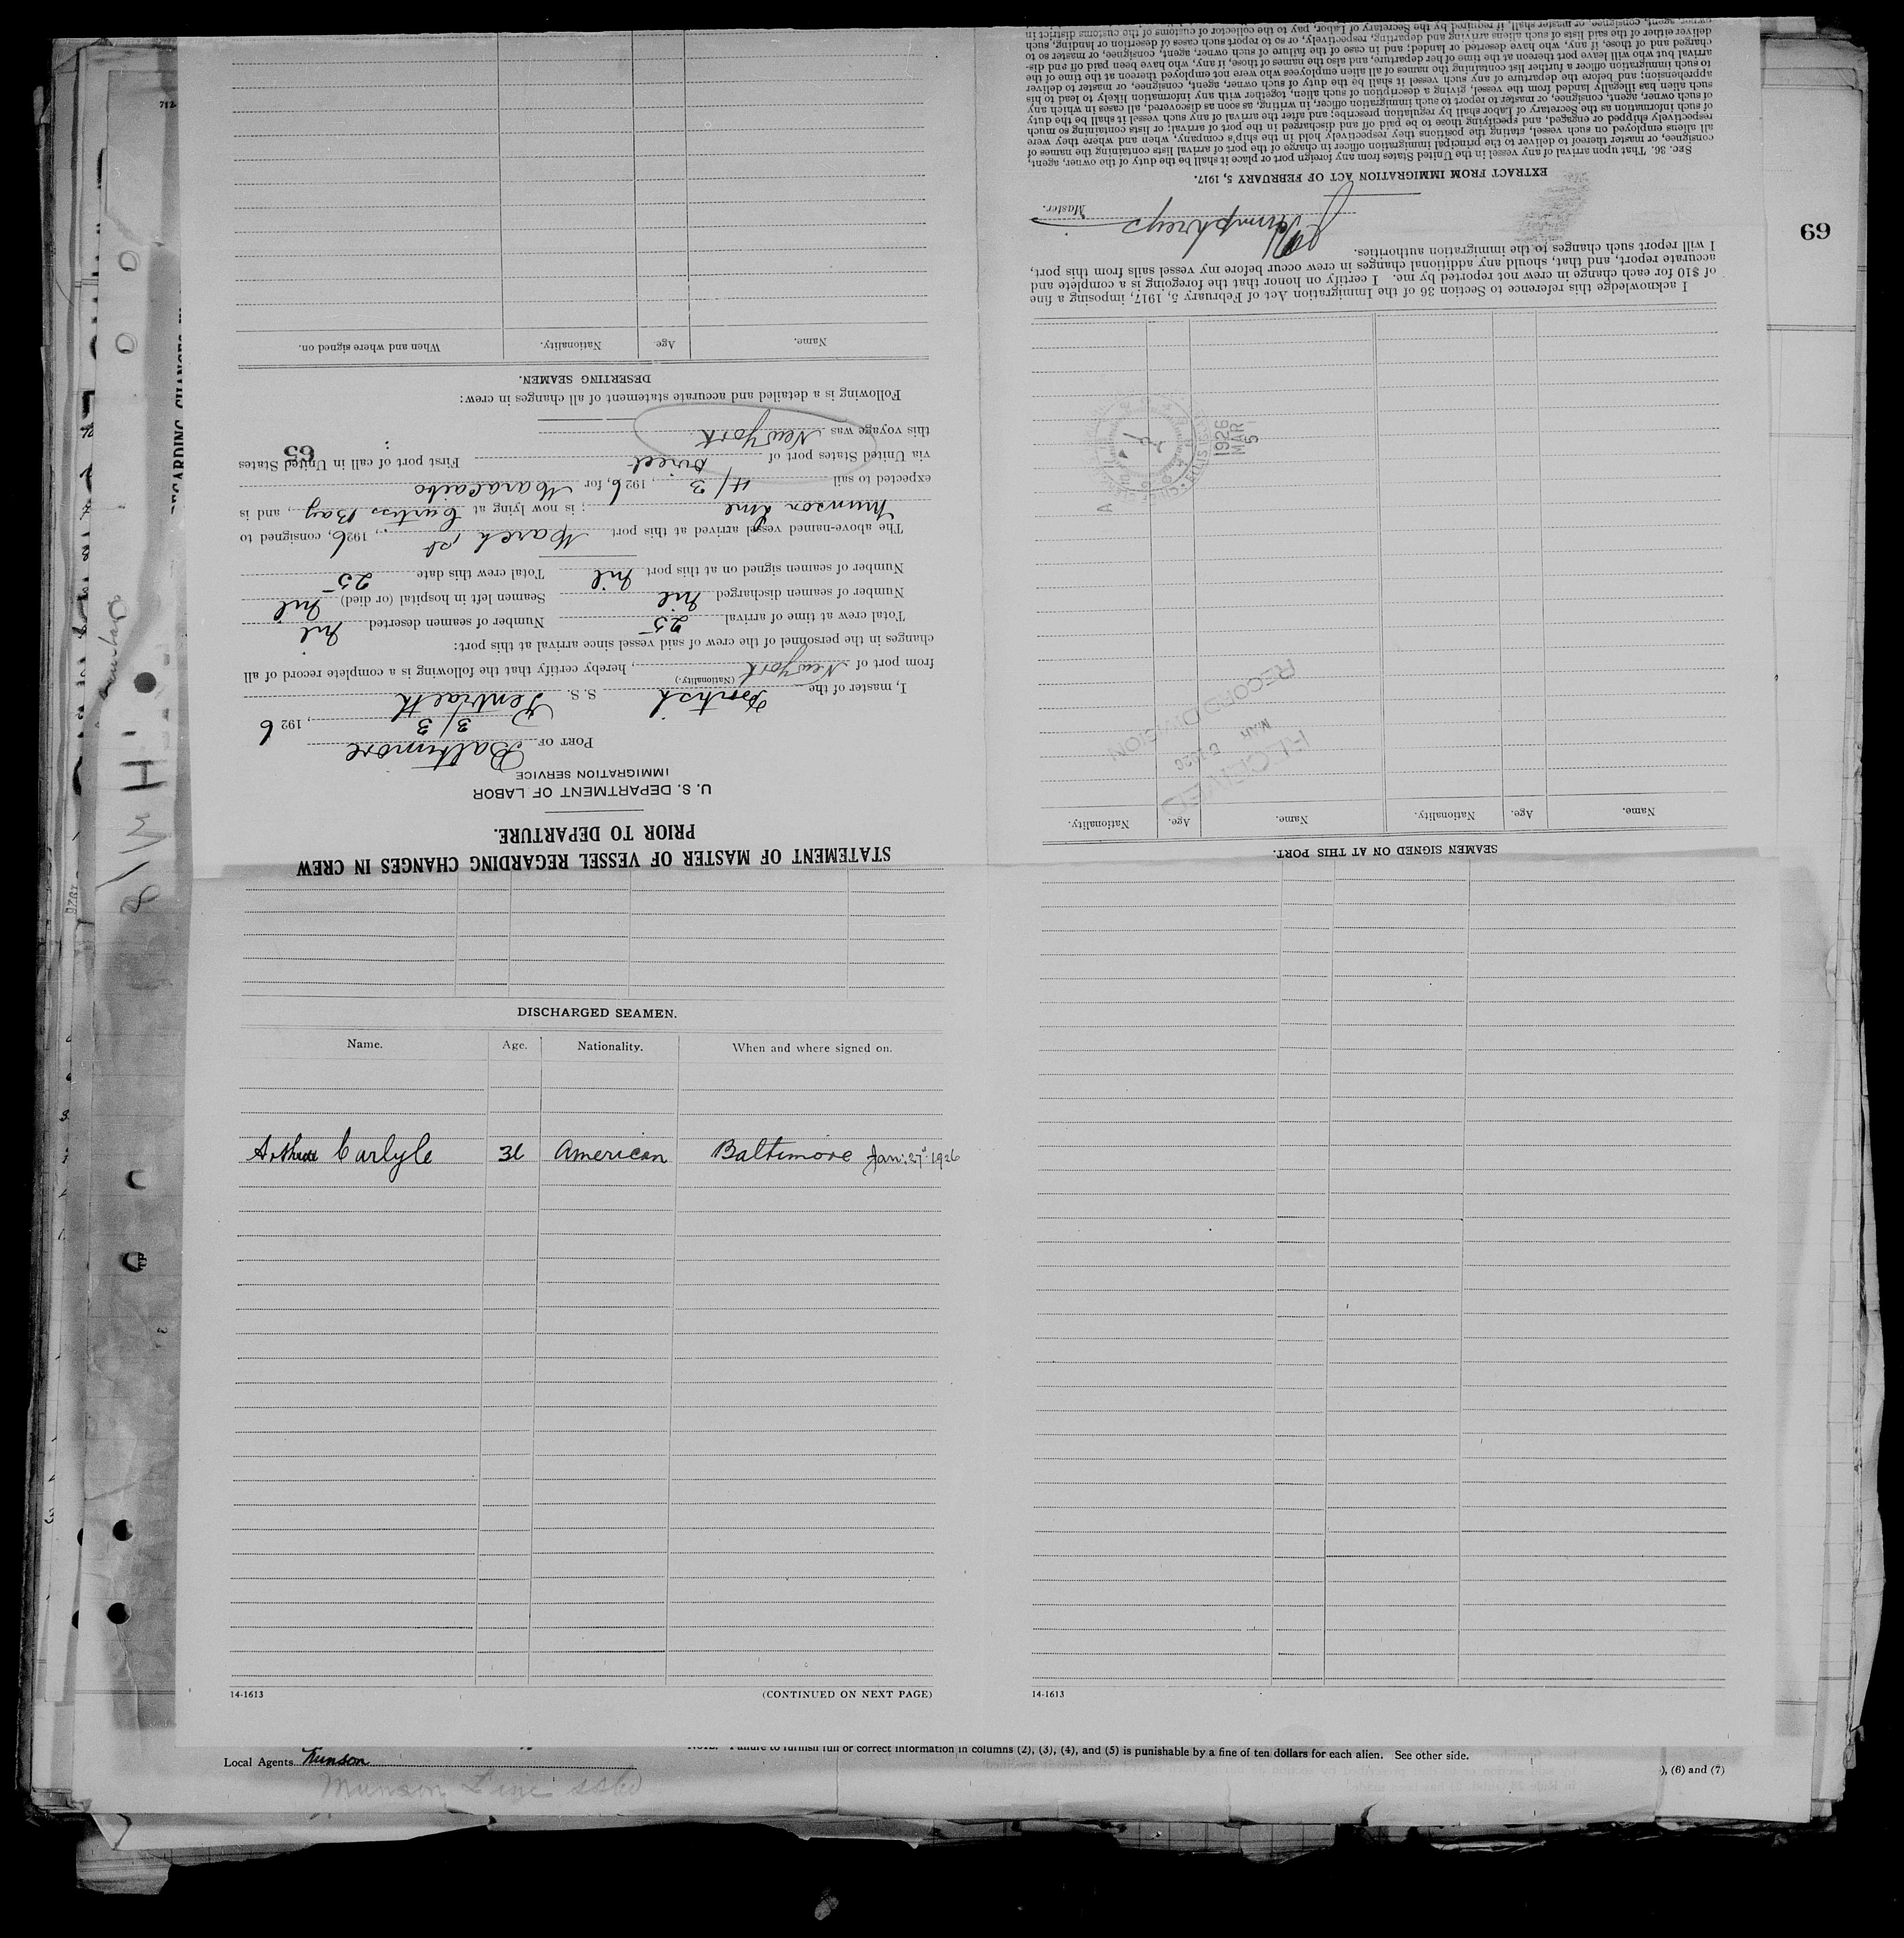 STATEMENT OF MASTER OF VESSEL REGARDING CHANGES IN CREW
PRIOR TO DEPARTURE.
U. S. DEPARTMENT OF LABOR
IMMIGRATION SERVICE
PORT OF Baltimore
3/3, 1926
I, master of the British S. S. Pentraeth
(Nationality.)
from port of New York, hereby certify that the following is a complete record of all
changes in the personnel of the crew of said vessel since arrival at this port:
Total crew at time of arrival 25 Number of seamen deserted Nil
Number of seamen discharged Nil Seamen left in hospital (or died) Nil
Number of seamen signed on at this port Nil Total crew this date 25
The above-named vessel arrived at this port March 1st, 1926, consigned to
Munson Line; is now lying at Curtiss Bay, and is
expected to sail 4/3, 1926, for Maracaibo
via United States port of Direct First port of call in United States
this voyage was New York
65
Following is a detailed and accurate statement of all changes in crew:
DESERTING SEAMEN.
Name. Age. Nationality. When and where signed on.
DISCHARGED SEAMEN.
Name. Age. Nationality. When and where signed on.
Carlyle American Baltimore Jan: 27 1926
14-1613 (CONTINUED ON NEXT PAGE)
SEAMEN SIGNED ON AT THIS PORT.
Name. Age. Nationality. Name. Age. Nationality.
RECEIVED
MAR 5 1926
RECORD DIVISION
1926
MAR
5
I acknowledge this reference to Section 36 of the Immigration Act of February 5, 1917, imposing a fine
of $10 for each change in crew not reported by me. I certify on honor that the foregoing is a complete and
accurate report, and that, should any additional changes in crew occur before my vessel sails from this port,
I will report such changes to the immigration authorities.
Humphreys
Master.
EXTRACT FROM IMMIGRATION ACT OF FEBRUARY 5, 1917.
SEC. 36. That upon arrival of any vessel in the United States from any foreign port or place it shall be the duty of the owner, agent,
consignee, or master thereof to deliver to the principal immigration officer in charge of the port of arrival lists containing the names of
all aliens employed on such vessel, stating the positions they respectively hold in the ship's company, when and where they were
respectively shipped or engaged, and specifying those to be paid off and discharged in the port of arrival; or lists containing so much
of such information as the Secretary of Labor shall by regulation prescribe; and after the arrival of any such vessel it shall be the duty
of such owner, agent, consignee, or master to report to such immigration officer, in writing, as soon as discovered, all cases in which any
such alien has illegally landed from the vessel, giving a description of such alien, together with any information likely to lead to his
apprehension; and before the departure of any such vessel it shall be the duty of such owner, agent, consignee, or master to deliver
to such immigration officer a further list containing the names of all alien employees who were not employed thereon at the time of the
arrival but who will leave port thereon at the time of her departure, and also the names of those, if any, who have been paid off and dis-
charged and of those, if any, who have deserted or landed; and in case of the failure of such owner, agent, consignee, or master so to
deliver either of the said lists of such aliens arriving and departing, respectively, or so to report such cases of desertion or landing, such
owner, agent, consignee, or master shall, if required by the Secretary of Labor, pay to the collector of customs of the customs district in
14-1613
69
712
Local Agents Munson
Munson Line
NOTE. Failure to furnish full or correct information in columns (2), (3), (4), and (5) is punishable by a fine of ten dollars for each alien. See other side.
), (6) and (7)